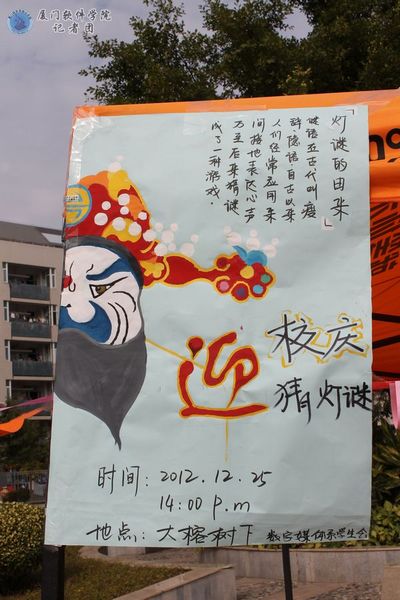 厦门软件学院
记者团
「灯谜的由来」
谜语在古代叫廋
辞、隐语。自古以来
人们经常应用来
间接地表达心声
乃至后来猜谜
成了一种游戏。
迎
校庆
猜灯谜
时间：2012.12.25
14:00 P.m
地点：大榕树下
数字媒体系学生会